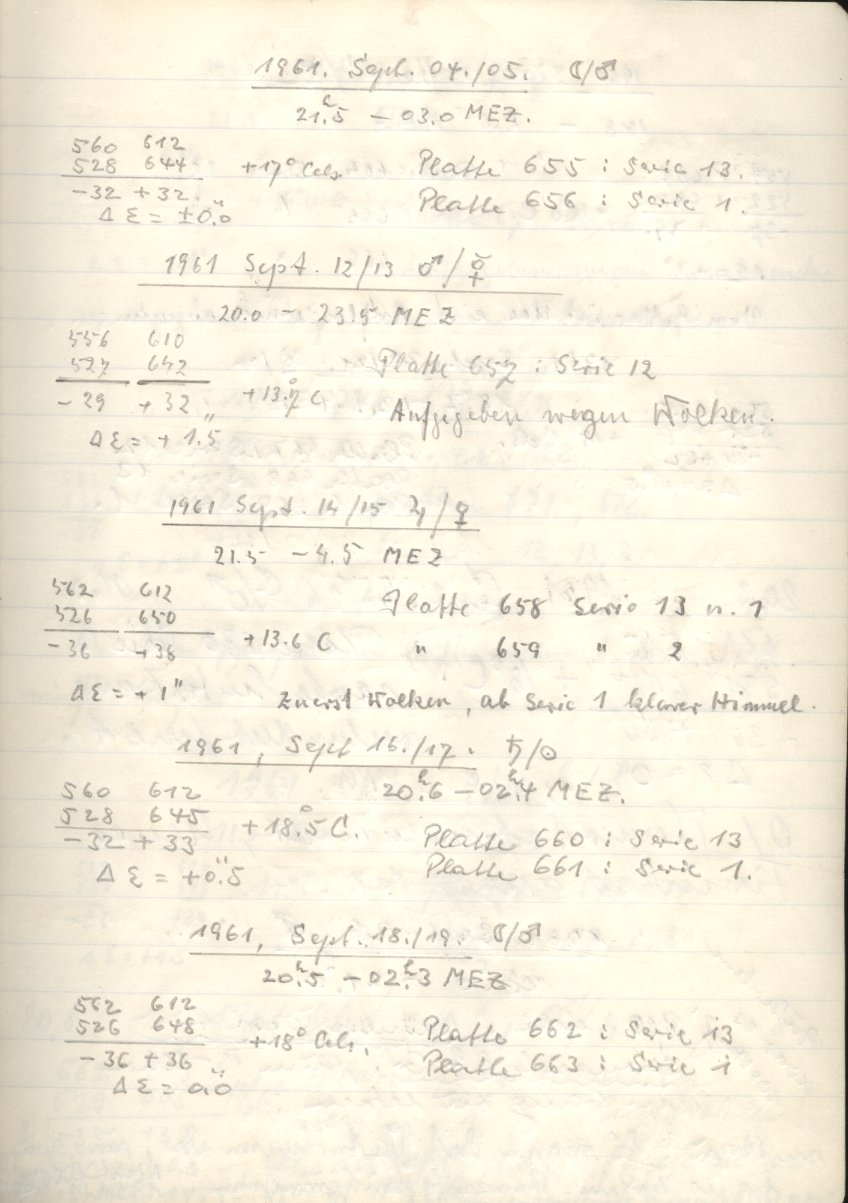 1961. Sept. 04./05. ☾/♂
21ʰ.5 – 03.0 MEZ.
560 612
528 644 +17° Cels. Platte 655 : Serie 13.
-32 +32. Platte 656 : Serie 1.
Δ Ɛ = ±0".0
1961 Sept. 12/13 ♂/☿
20.0 – 23.5 MEZ
556 610
527 642 Platte 657 : Serie 12
-29 +32 +13.°7 C Aufgegeben wegen Wolken.
Δ Ɛ = + 1".5
1961 Sept. 14/15 ♃/♀
21.5 – 4.5 MEZ
562 612 Platte 658 Serie 13 u. 1
526 650 +13.6 C " 659 " 2
-36 +38
Δ Ɛ = + 1" Zuerst Wolken, ab Serie 1 klarer Himmel.
1961, Sept 16./17. ♄/☉
20ʰ.6 – 02ʰ.4 MEZ.
560 612
528 645 +18.°5 C. Platte 660 : Serie 13
-32 +33 Platte 661 : Serie 1.
Δ Ɛ = +0".5
1961, Sept. 18./19. ☾/♂
20ʰ.5 – 02ʰ.3 MEZ
562 612
526 648 +18° Cels. Platte 662 : Serie 13
-36 +36 Platte 663 : Serie 1
Δ Ɛ = 0".0